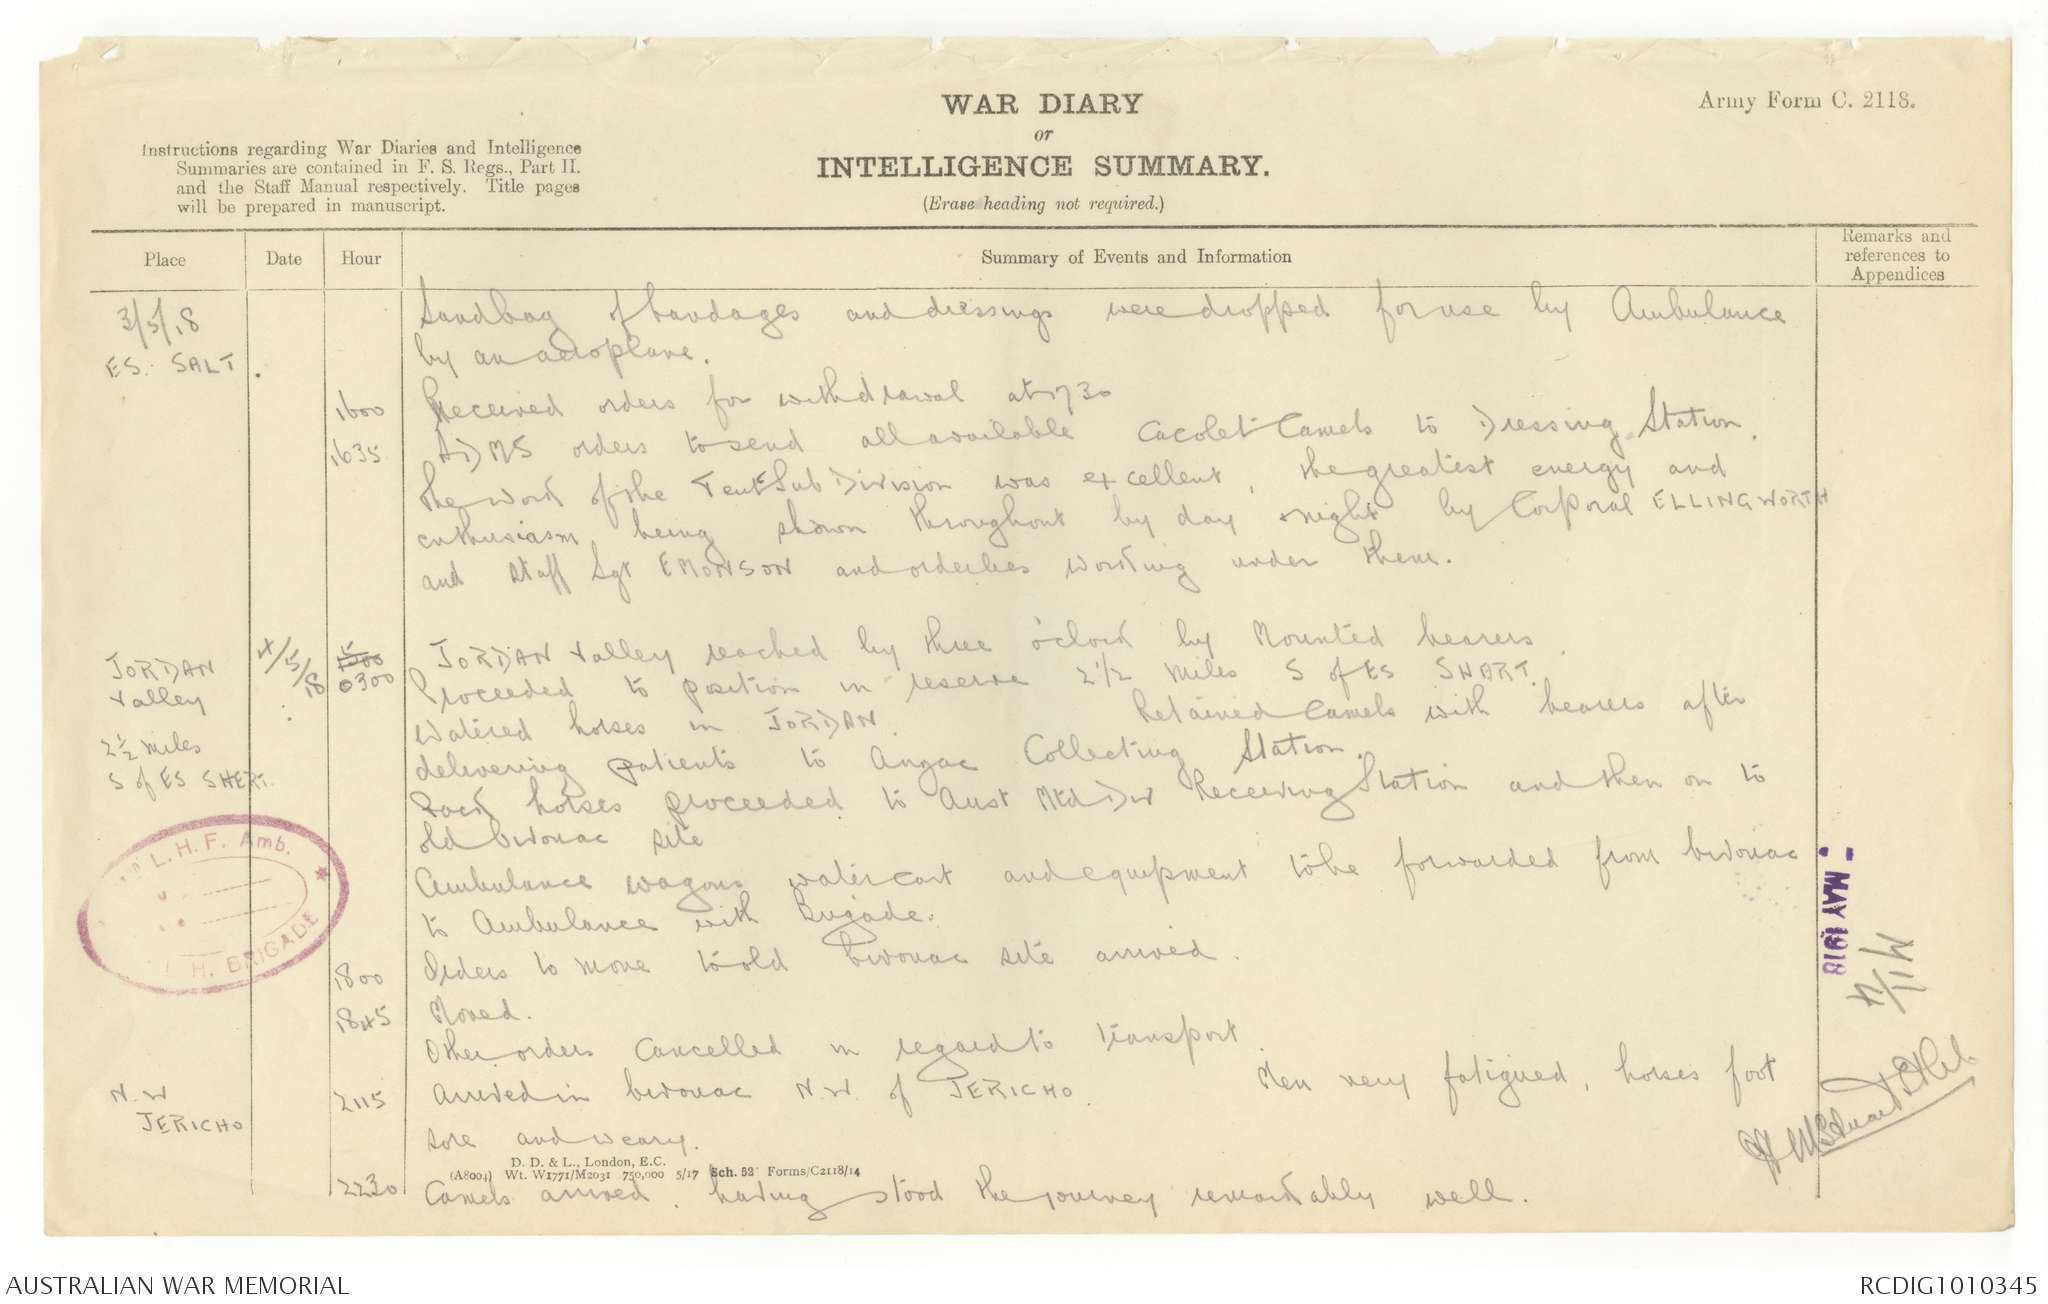 WAR DIARY
or
INTELLIGENCE SUMMARY.
(Erase heading not required.)
Army Form C. 2118.
Instructions regarding War Diaries and Intelligence
Summaries are contained in F. S. Regs., Part II.
and the Staff Manual respectively. Title pages
will be prepared in manuscript.
Place Date Hour Summary of Events and Information Remarks and references to Appendices
3/5/18 Sandbag of bandages and dressings were dropped for use by Ambulance
ES. SALT. by an aeroplane.
1600 Received orders for withdrawal at 1730
1635 ADMS orders to send all available Cacolet Camels to Dressing Station.
The work of the Tent Sub Division was excellent, the greatest energy and
enthusiasm being shown throughout by day & night by Corporal ELLINGWORTH
and Staff Sgt EMONSON and orderlies working under them.
JORDAN Valley 4/5/18 0300 JORDAN Valley reached by three o'clock by Mounted bearers.
Proceeded to position in reserve 2 1/2 miles S of ES SHART.
Watered horses in JORDAN. Retained Camels with bearers after
2 1/2 miles delivering patients to Anzac Collecting Station.
S of ES SHERT. Pack horses proceeded to Aust Mtd Div Receiving Station and then on to
old bivouac site
Ambulance wagons water cart and equipment to be forwarded from bivouac
to Ambulance with Brigade.
1800 Orders to move to old bivouac site arrived.
1845 Moved.
Other orders cancelled in regard to transport.
N.W JERICHO 2115 Arrived in bivouac N.W. of JERICHO. Men very fatigued, horses foot
sore and weary.
2230 Camels arrived, having stood the journey remarkably well.
L.H.F. Amb.
H. BRIGADE
MAY 1918
M11/4
D. D. & L., London, E.C.
(A8004) Wt. W1771/M2031 750,000 5/17 Sch. 52 Forms/C2118/14
AUSTRALIAN WAR MEMORIAL
RCDIG1010345